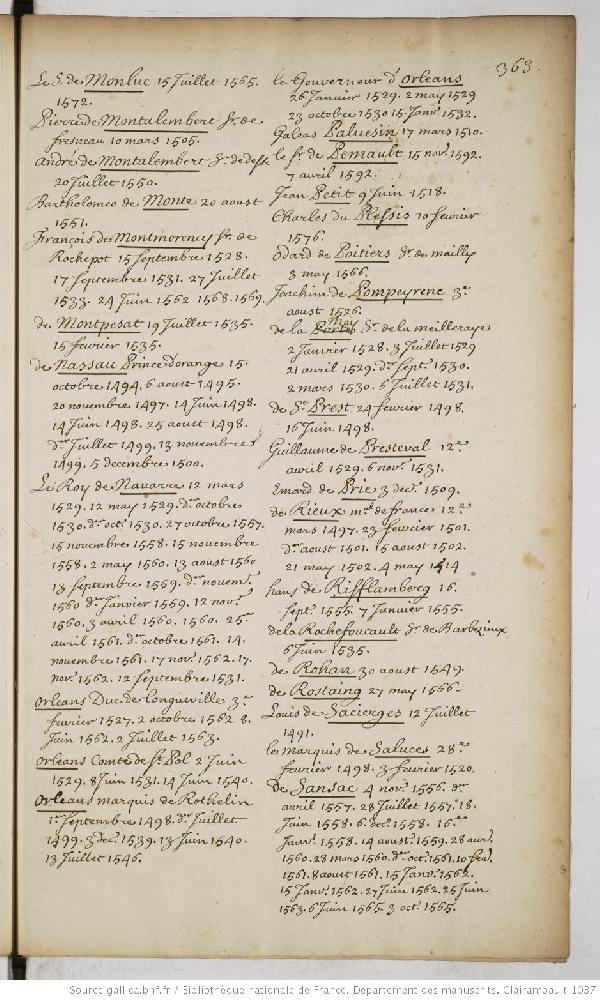 363.
Le S. de Monluc 15 Juillet 1565.
1572.
Pierre de Montalembert Sr. de
10 mars 1505.
André de Montalembert Sr. de dessé
20 Juillet 1550.
Bartholomeo de Monte 20 aoust
1551.
François de Montmorency Sr. de
Rochepot 15 septembre 1528.
17 septembre 1531. 27 Juillet
1533. 24 Juin 1562 1568. 1569.
de Montpesat 19 Juillet 1535.
15 fevrier 1535.
de Nassau Prince dorange 15.
octobre 1494. 6 aoust 1495.
20 novembre 1497. 14 Juin 1498.
14 Juin 1498. 25 aoust 1498.
Juillet 1499. 13 novembre
1499. 5 decembre 1500.
Le Roy de Navarre 12 mars
1529. 12 may 1529. dr. octobre
1530. dr. oct. 1530. 27 octobre 1557.
15 novembre 1558. 15 novembre
1558. 2 may 1560. 13 aoust 1560
13 septembre 1559. dr. novem.
1560 dr. Janvier 1559. 12 nov.
1560. 3 avril 1560. 1560. 25
avril 1561. dr. octobre 1561. 14.
novembre 1561. 17 nov. 1562. 17.
nov. 1562. 12 septembre 1531.
Orleans Duc de Longueville 3e
fevrier 1527. 2 octobre 1562 8.
Juin 1562. 2 Juillet 1563.
Orleans Comte de St. Pol 2 Juin
1529. 8 Juin 1531. 14 Juin 1540.
Orleans marquis de Rothelin
1er septembre 1498. dr. Juillet
1499. 3 dec. 1539. 13 Juin 1540.
13 Juillet 1546.
le Gouverneur d'Orleans
26 Janvier 1529. 2 may 1529
23 octobre 1530 15 Janv. 1532.
Galeas Paluesin 17 mars 1510.
le Sr. de Pemault 15 nov. 1592.
7 avril 1592.
Jean Petit 9 Juin 1518.
Charles du Plessis 10 fevrier
1576.
Odard de Poitiers Sr. de mailly
3 may 1566.
Joachim de Pompeyrene 3e
aoust 1526.
de la Porte Sr. de la meilleraye
2 Janvier 1528. 3 Juillet 1529
21 avril 1529. dr. sept. 1530.
2 mars 1530. 6 Juillet 1531.
de St. Prest 24 fevrier 1498.
16 Juin 1498.
Guillaume de Presteval 12e
avril 1529. 6 nov. 1531.
Emard de Prie 3 dec. 1509.
de Rieux mal. de france 12e
mars 1497. 23 fevrier 1501.
dr. aoust 1501. 15 aoust 1502.
21 may 1502. 4 may 1514
hans de Rifflamberg 16.
sept. 1555. 7 Janvier 1555.
de la Rochefoucault Sr. de Barbezieux
6 Juin 1535.
de Rohan 30 aoust 1549.
de Rostaing 27 may 1566.
Louis de Sacierges 12 Juillet
1491.
les marquis de Saluces 28e
fevrier 1498. 3 fevrier 1520.
de Sansac 4 nov. 1556. dr.
avril 1557. 28 Juillet 1557. 18.
Juin 1558. 6 dec. 1558. 16e
Janv. 1558. 14 aoust 1559. 28 avr.
1560. 28 mars 1560. dr. oct. 1561. 10 fev.
1561. 8 aoust 1561. 15 Janv. 1562.
15 Janv. 1562. 27 Juin 1562. 25 Juin
1563. 6 Juin 1565. 3 oct. 1565.
Source gallica.bnf.fr / Bibliothèque nationale de France. Département des manuscrits. Clairambault 1037